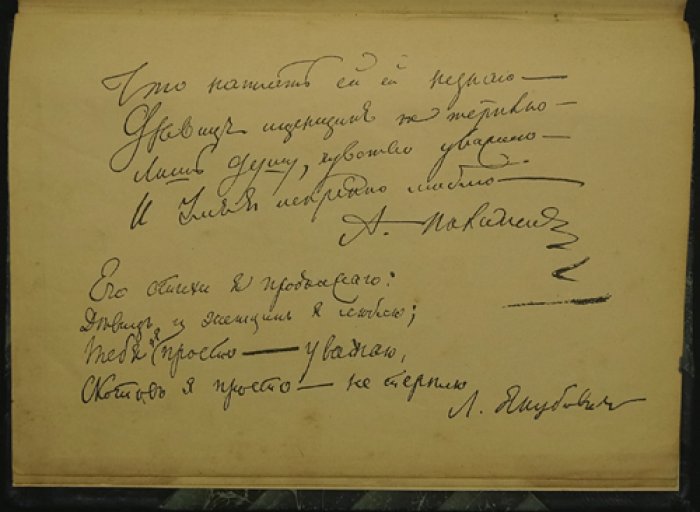 Что написать ей ей не знаю —
Дѣвицъ и женщинъ не терплю —
Лишь душу, чувство уважаю —
И искренно люблю —
А.
Его стихи я продолжаю:
Дѣвицъ и женщинъ я люблю;
Тебя я просто — уважаю,
Скотовъ я просто — не терплю
Л. Якубович